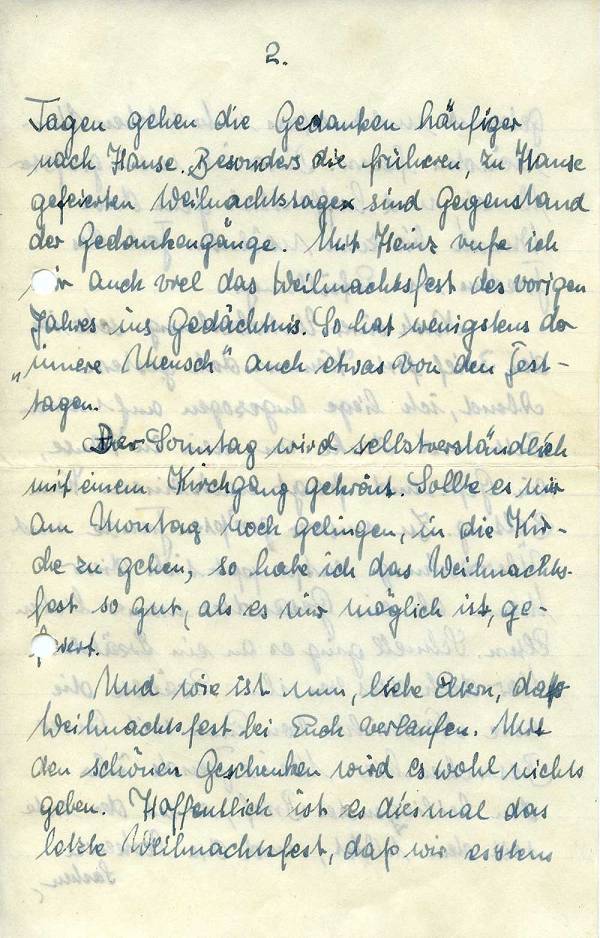 2.
Tagen gehen die Gedanken häufiger
nach Hause. Besonders die früheren, zu Hause
gefeierten Weihnachtstage sind Gegenstand
der Gedankengänge. Mit Heinz rufe ich
mir auch viel das Weihnachtsfest des vorigen
Jahres ins Gedächtnis. So hat wenigstens der
„innere Mensch" auch etwas von den Fest-
tagen.
Der Sonntag wird selbstverständlich
mit einem Kirchgang gekrönt. Sollte es mir
am Montag noch gelingen, in die Kir-
che zu gehen, so habe ich das Weihnachts-
fest so gut, als es mir möglich ist, ge-
feiert.
Und wie ist nun, liebe Eltern, daß
Weihnachtsfest bei Euch verlaufen. Mit
den schönen Geschenken wird es wohl nichts
geben. Hoffentlich ist es diesmal das
letzte Weihnachtsfest, daß wir erstens